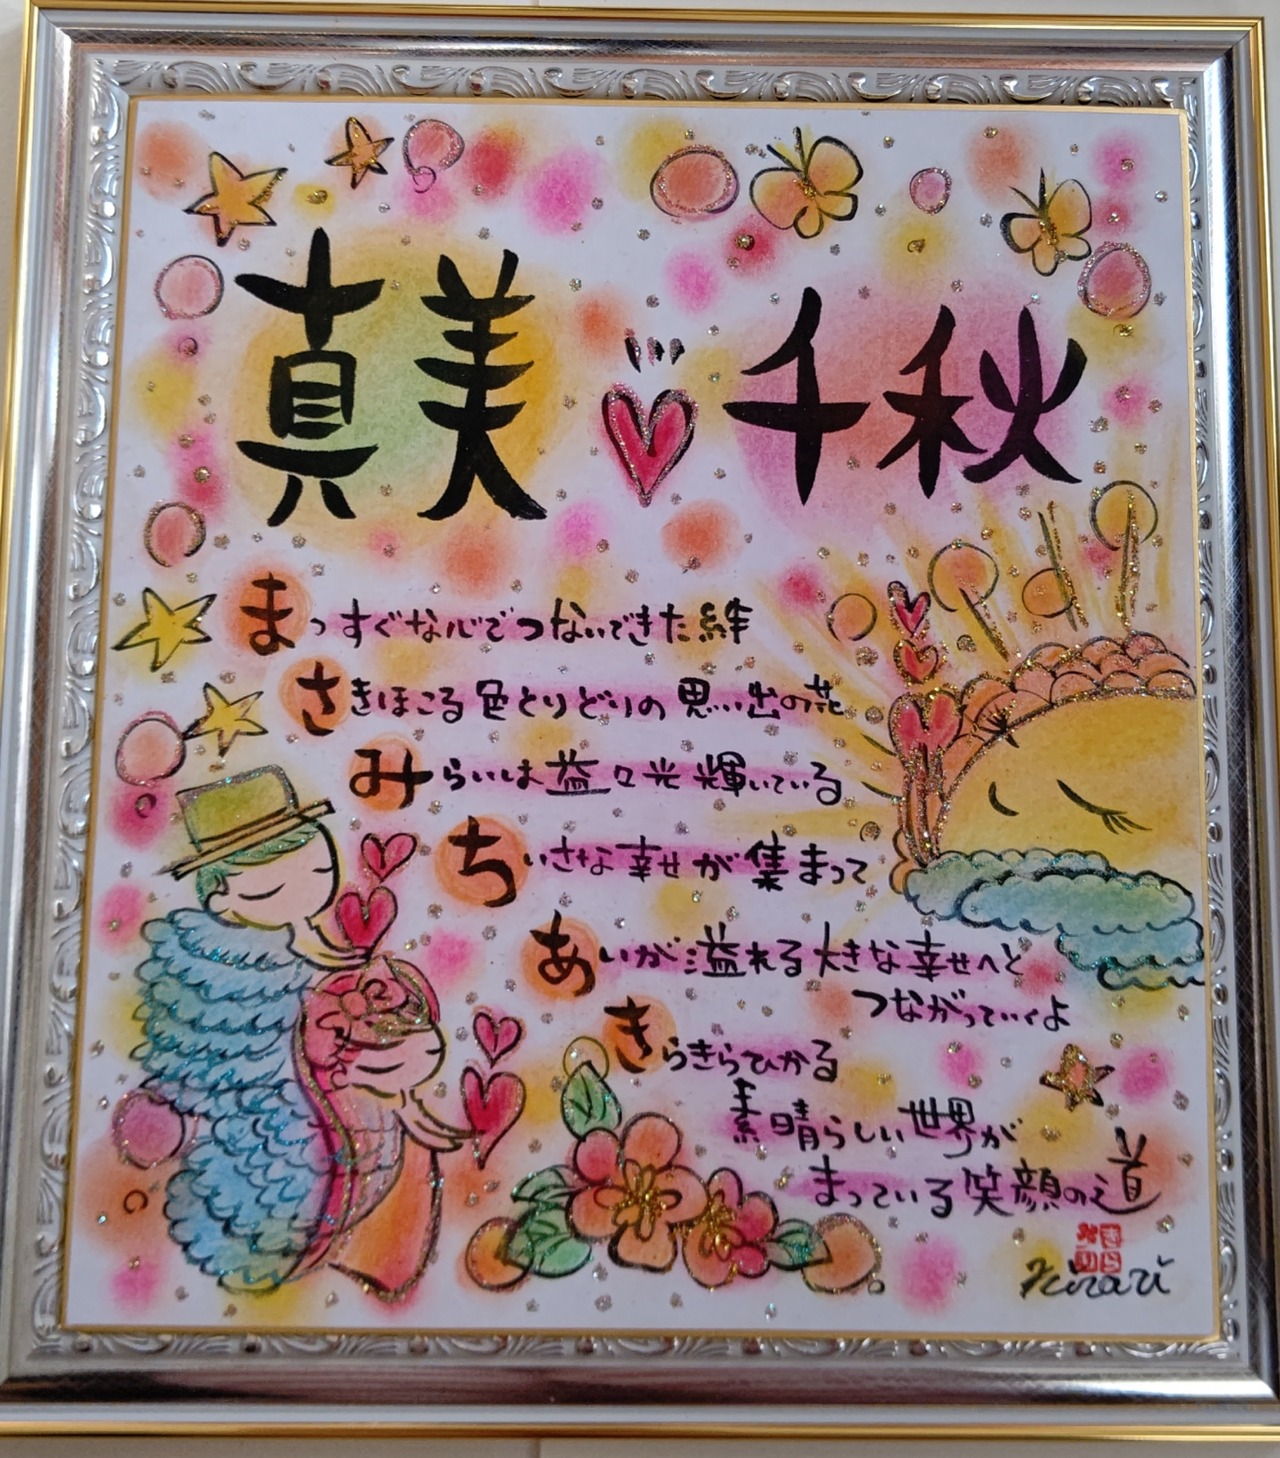 真美 千秋
まっすぐな心でつないできた絆
さきほこる色とりどりの思い出の花
みらいは益々光輝いている
ちいさな幸せが集まって
あいが溢れる大きな幸せへと
つながっていくよ
きらきらひかる
素晴らしい世界が
まっている笑顔の道
Kirari